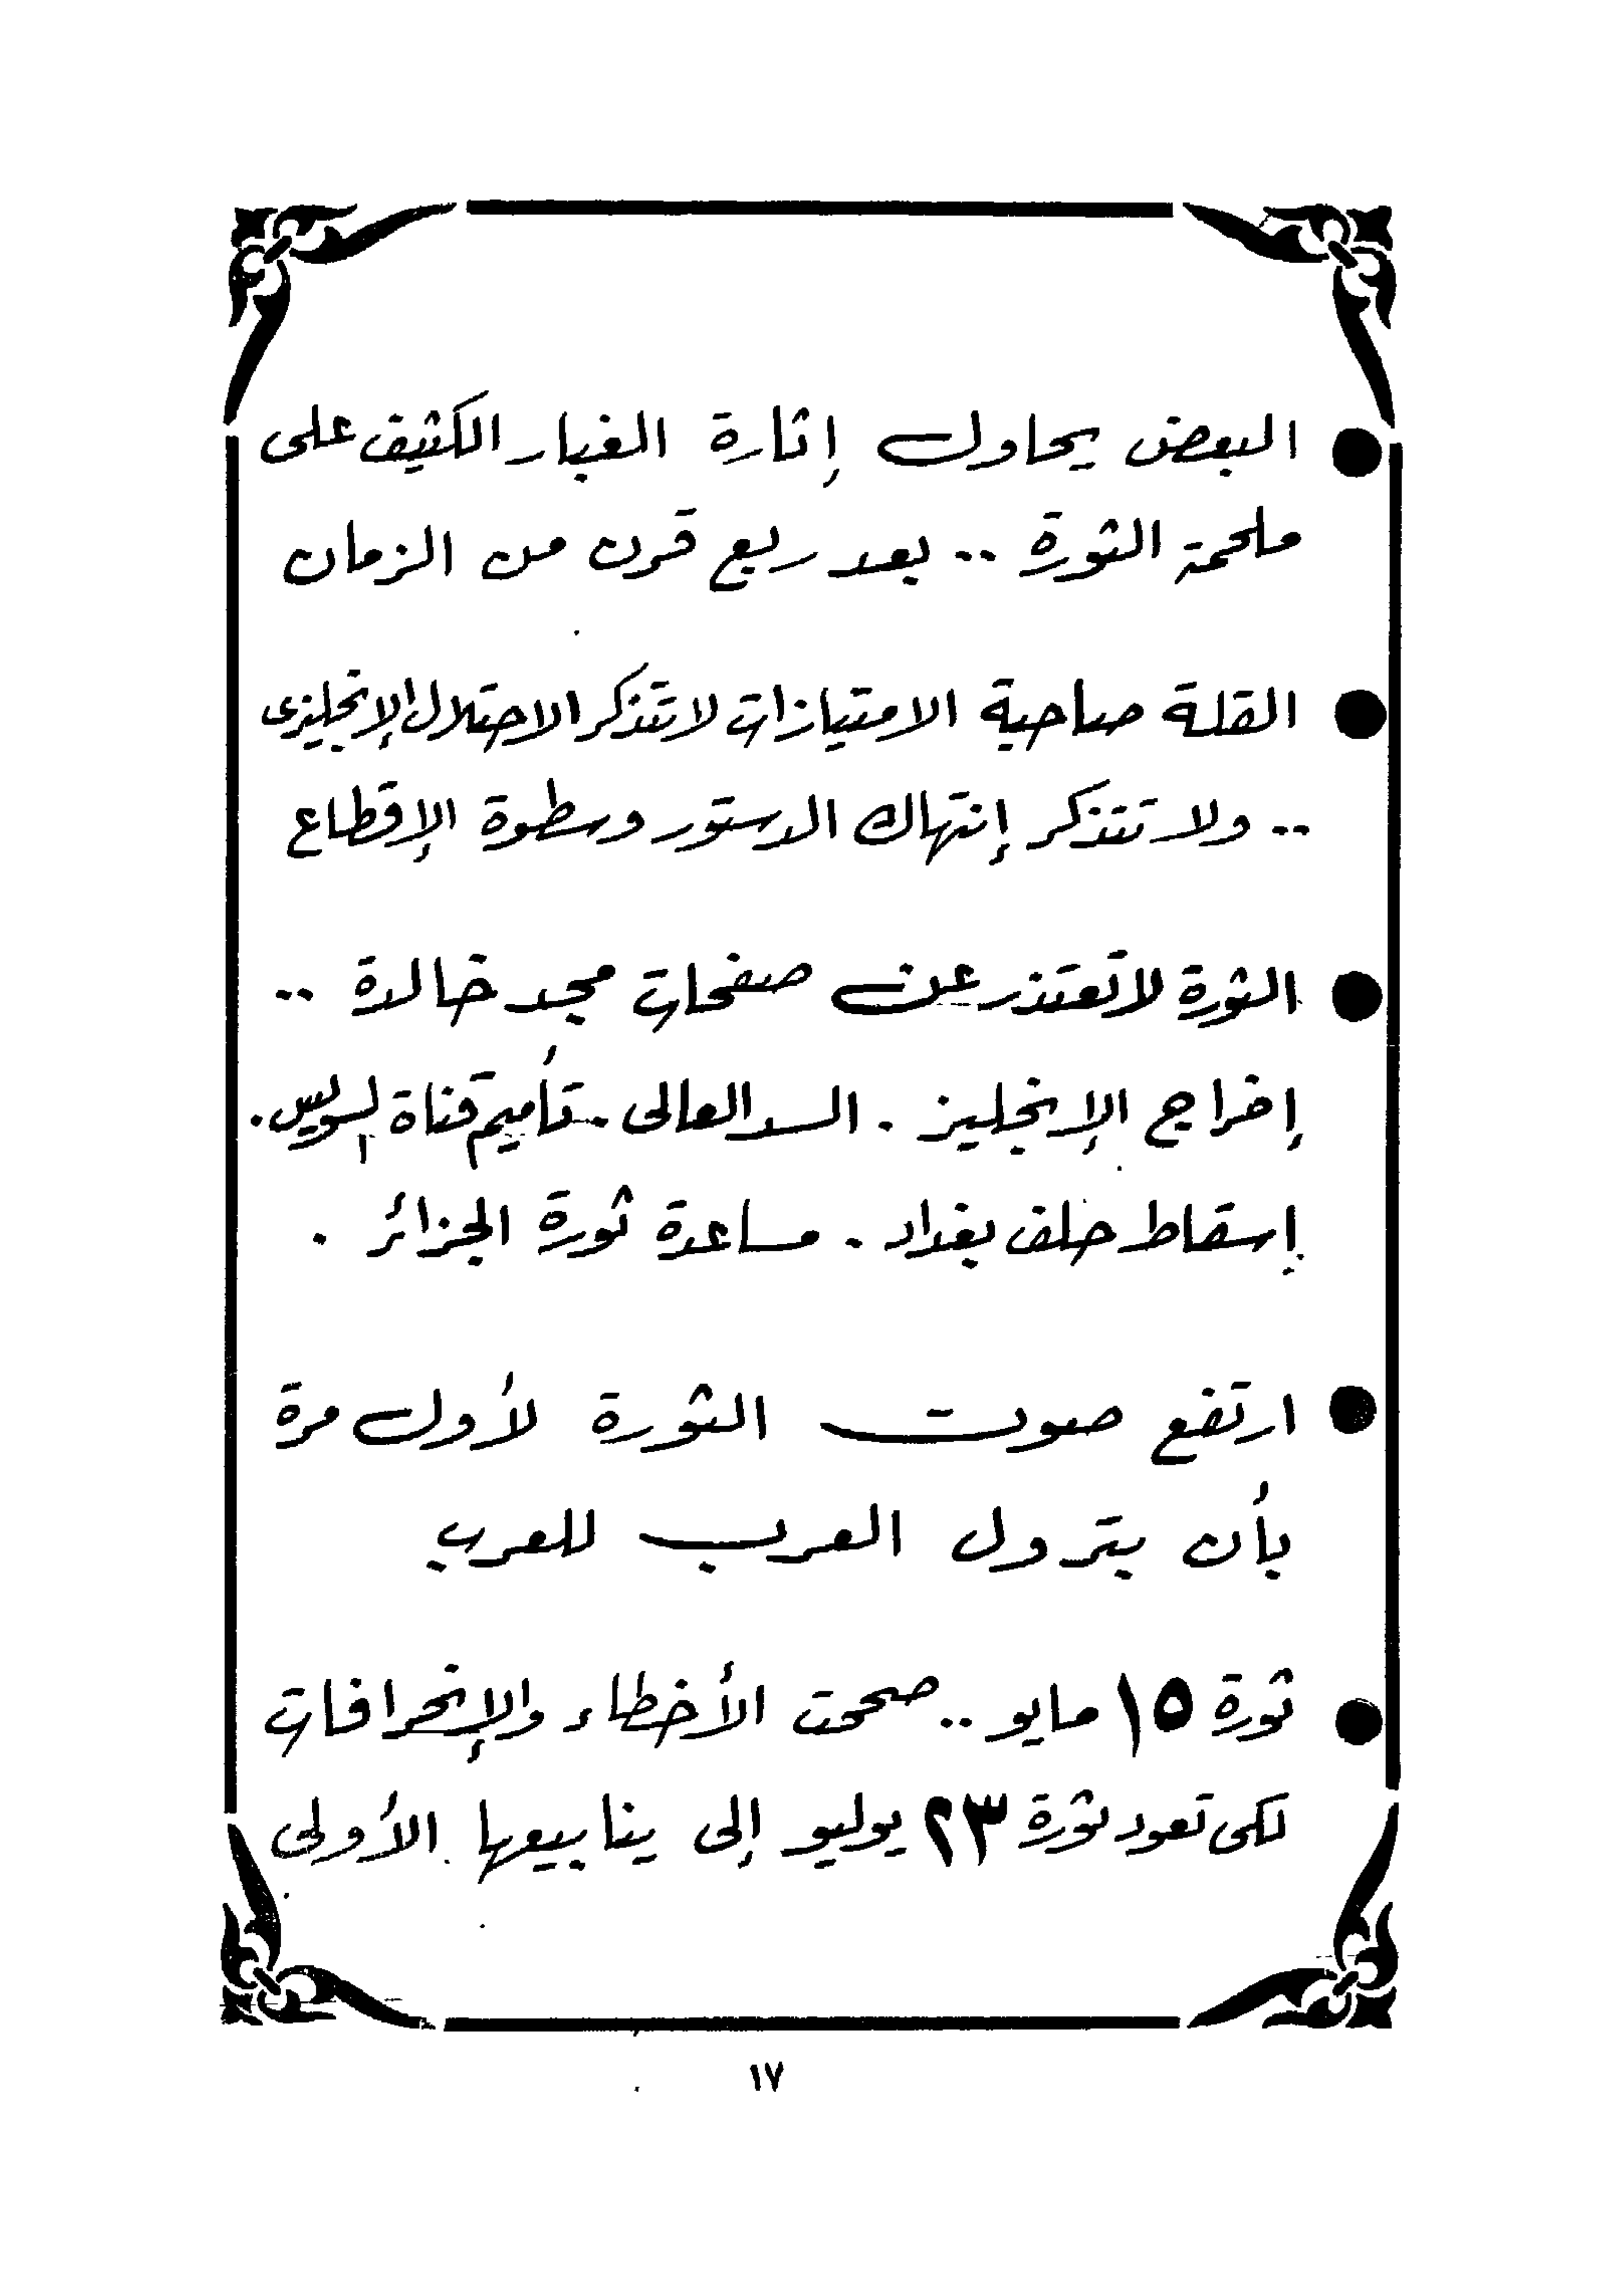 ● البعض يحاول إثارة الغبار الكثيف على
ملحمة الثورة .. بعد ربع قرن من الزمان
● القلة صاحبة الامتيازات لا تتذكر الاحتلال الإنجليزى
.. ولا تتذكر إنتهاك الدستور وسطوة الإقطاع
● الثورة لا تعتذر عن صفحات مجد خالدة ..
إخراج الإنجليز . السد العالى . تأميم قناة السويس .
إسقاط حلف بغداد . مساعدة ثورة الجزائر .
● ارتفع صوت الثورة لأول مرة
بأن بترول العرب للعرب
● ثورة ١٥ مايو .. صححت الأخطاء والإنحرافات
لكى تعود ثورة ٢٣ يوليو إلى ينابيعها الأولى
١٧